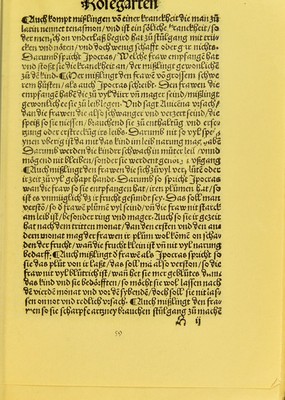 Rosegarten
¶Auch kompt mißlingen vō einer kranckheit die man zů
latin nennet tenasmon/ vnd ist ein sölliche kranckheit/ so
der menschon vnderlaß begird hat zů stůlgang mit trü
cken vnd nöten/ vnd doch wenig schafft oder gar nichts.
Darumb spricht Ipocras/ Welche fraw empfangē hat
vnd stoßt sie die kranckheit an/ der mißlinget gewonlichē
zů dē kind. ¶Wer mißlingen den frawē võ grossem schwe
rem hůsten/ als auch Ipocras schreibt. Den frawen die
empfangē habē die zů vyl dürr vñ mager seind/ mißlinget
gewonlichen ee zů leiblegen. Vnd sagt Auicēna vrsach/
wan die frawen die also schwanger vnd verzert seind/ die
speiß so sie niessen/ brauchend sie zů entheltung vnd erse
tzung oder erstreckūg irs leibs. Darumb mit so vyl speiß
ynen vberig ist da mit das kind im leib narung mag habē
Darumb werden die kinder schwach in můter leib/ vnd
mögend nit bleiben/ sonder sie werdent genötigt vßgang
¶Auch mißlingt den frawen die sich zů vyl vertzlůtē oder
it zeit zů vyl gehapt handt. Darumb so spricht Ipocras
wan die fraw so sie empfangen hat/ iren plůmen hat/ so
ist es vnmüglich dz ir frucht gesundt sey. Das soll man
verstō/ so ď frawē plůmē vyl seind/ vñ die fraw nit starck
im leib ist/ besonder ring vnd mager. Auch so sie it gezeit
hat nach dem dritten monat/ dan den ersten vnd den an
dern monat mag der frawen ir plům wol kōmē on schad
den der frucht/ wañ die frucht klein ist vñ nit vyl narung
bedarff. ¶Auch mißlingt ď frawē als Ipocras spricht/ so
sie das plůt von it laßt/ das soll mā also verston/ so die
fraw nit vyl blůtrich ist/ wañ het sie mer geblůts dann
das kind vnd sie bedörfften/ so möcht sie wol lassen nach
dē vierdē monat vnd vor dē sybendē/ doch soll sie nit las
sen on not vnd redlich vrsach. ¶Auch mißlingt den fra
wen so sie scharpffe artzney brauchen stůlgang zů machē
D ij